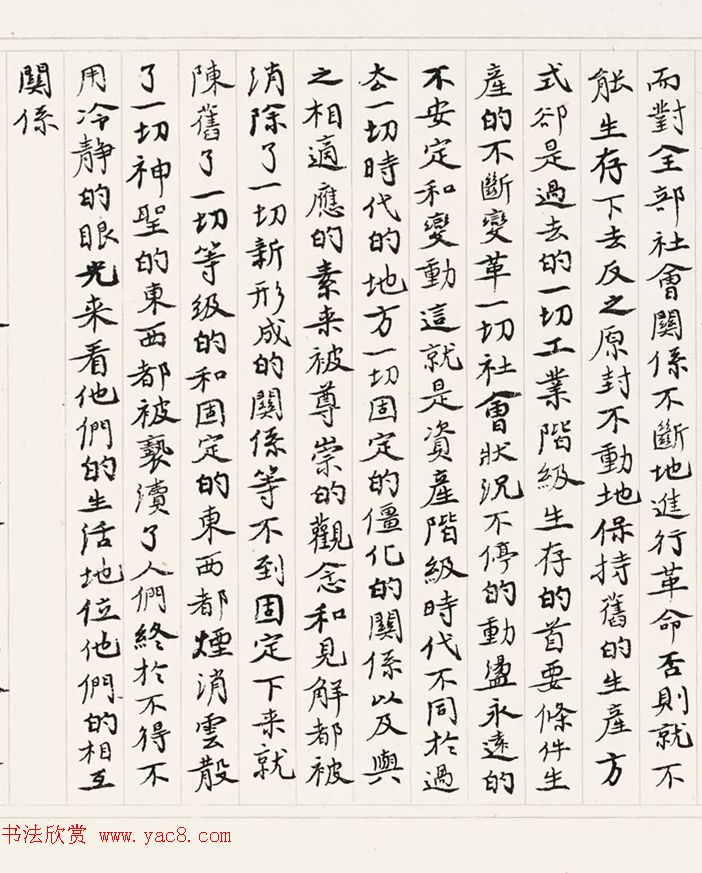 而對全部社會關係不斷地進行革命否則就不
能生存下去反之原封不動地保持舊的生產方
式卻是過去的一切工業階級生存的首要條件生
產的不斷變革一切社會狀況不停的動盪永遠的
不安定和變動這就是資產階級時代不同於過
去一切時代的地方一切固定的僵化的關係以及與
之相適應的素来被尊崇的觀念和見解都被
消除了一切新形成的關係等不到固定下来就
陳舊了一切等级的和固定的東西都煙消雲散
了一切神聖的東西都被褻瀆了人們終於不得不
用冷靜的眼光来看他們的生活地位他們的相互
關係
书法欣赏 www.yac8.com